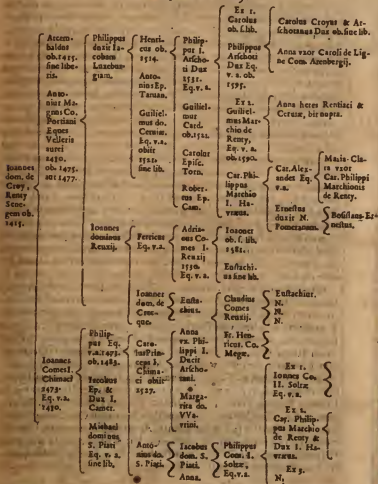 Ioannes
dom. de
Croy,
Renty
Seneg
em ob.
1415.
Arcem-
baldus
ob. 1415.
sine libe-
ris.
Anto-
nius Ma-
gnus Co.
Portiani
Eques
Velleris
aurei
1430.
ob. 1475.
aut 1477.
Ioannes
Comes I.
Chimaci
1473.
Eq. v. a.
1430.
Philippus
duxit Ia-
cobam
Luxebur-
giam.
Ioannes
dominus
Reuxij.
Philip-
pus Eq.
v.a. 1473.
ob. 1483.
Iacobus
Ep. &
Dux I.
Camer.
Michael
dominus
S. Piati
Eq. v. a.
sine lib.
Henri-
cus ob.
1514.
Anto-
nius Ep.
Taruan.
Guiliel-
mus do.
Ceruiæ.
Eq. v.a.
obiit
1521.
sine lib.
Ferricus
Eq. v.a.
Ioannes
dom. de
Crec-
que.
Caro-
lus Prin-
ceps I.
Chima-
ci obiit
1527.
Anto-
nius do.
S. Piati.
Philip-
pus I.
Arscho-
ti Dux
1531.
Eq. v. a.
Guiliel-
mus
Card.
ob. 1521.
Carolus
Episc.
Torn.
Rober-
tus Ep.
Cam.
Adria-
nus Co-
mes I.
Reuxij
1530.
Eq. v. a.
Eusta-
chius.
Anna
vx. Phi-
lippi I.
Ducis
Arscho-
tani.
Marga-
rita do.
VVa-
vrini.
Iacobus
dom. S.
Piati.
Anna.
Ex 1.
Carolus
ob. s. lib.
Philippus
Arschoti
Dux Eq.
v. a. ob.
1595.
Ex 2.
Guiliel-
mus Mar-
chio de
Renty,
Eq. v. a.
ob. 1590.
Car. Phi-
lippus
Marchio
I. Ha-
vræus.
Ioannes
ob. s. lib.
1581.
Eustachi-
us sine lib.
Claudius
Comes
Reuxij.
Fr. Hen-
ricus. Co.
Megæ.
Philippus
Com. I.
Solræ,
Eq.v.a.
Carolus Croyus & Ar-
schotanus Dux ob. sine lib.
Anna vxor Caroli de Lig-
ne Com. Arenbergij.
Anna heres Rentiaci &
Ceruiæ, bis nupta.
Car. Alex-
andes Eq.
v.a.
Ernestus
duxit N.
Pomeranam.
Maria-Cla-
ra vxor
Car. Philippi
Marchionis
de Renty.
Bosislaus-Er-
nestus.
Eustachius.
N.
N.
Ex 1.
Ioannes Co.
II. Solræ
Eq. v.a.
Ex 2.
Car. Philip-
pus Marchio
de Renty &
Dux I. Ha-
vræus.
Ex 3.
N.